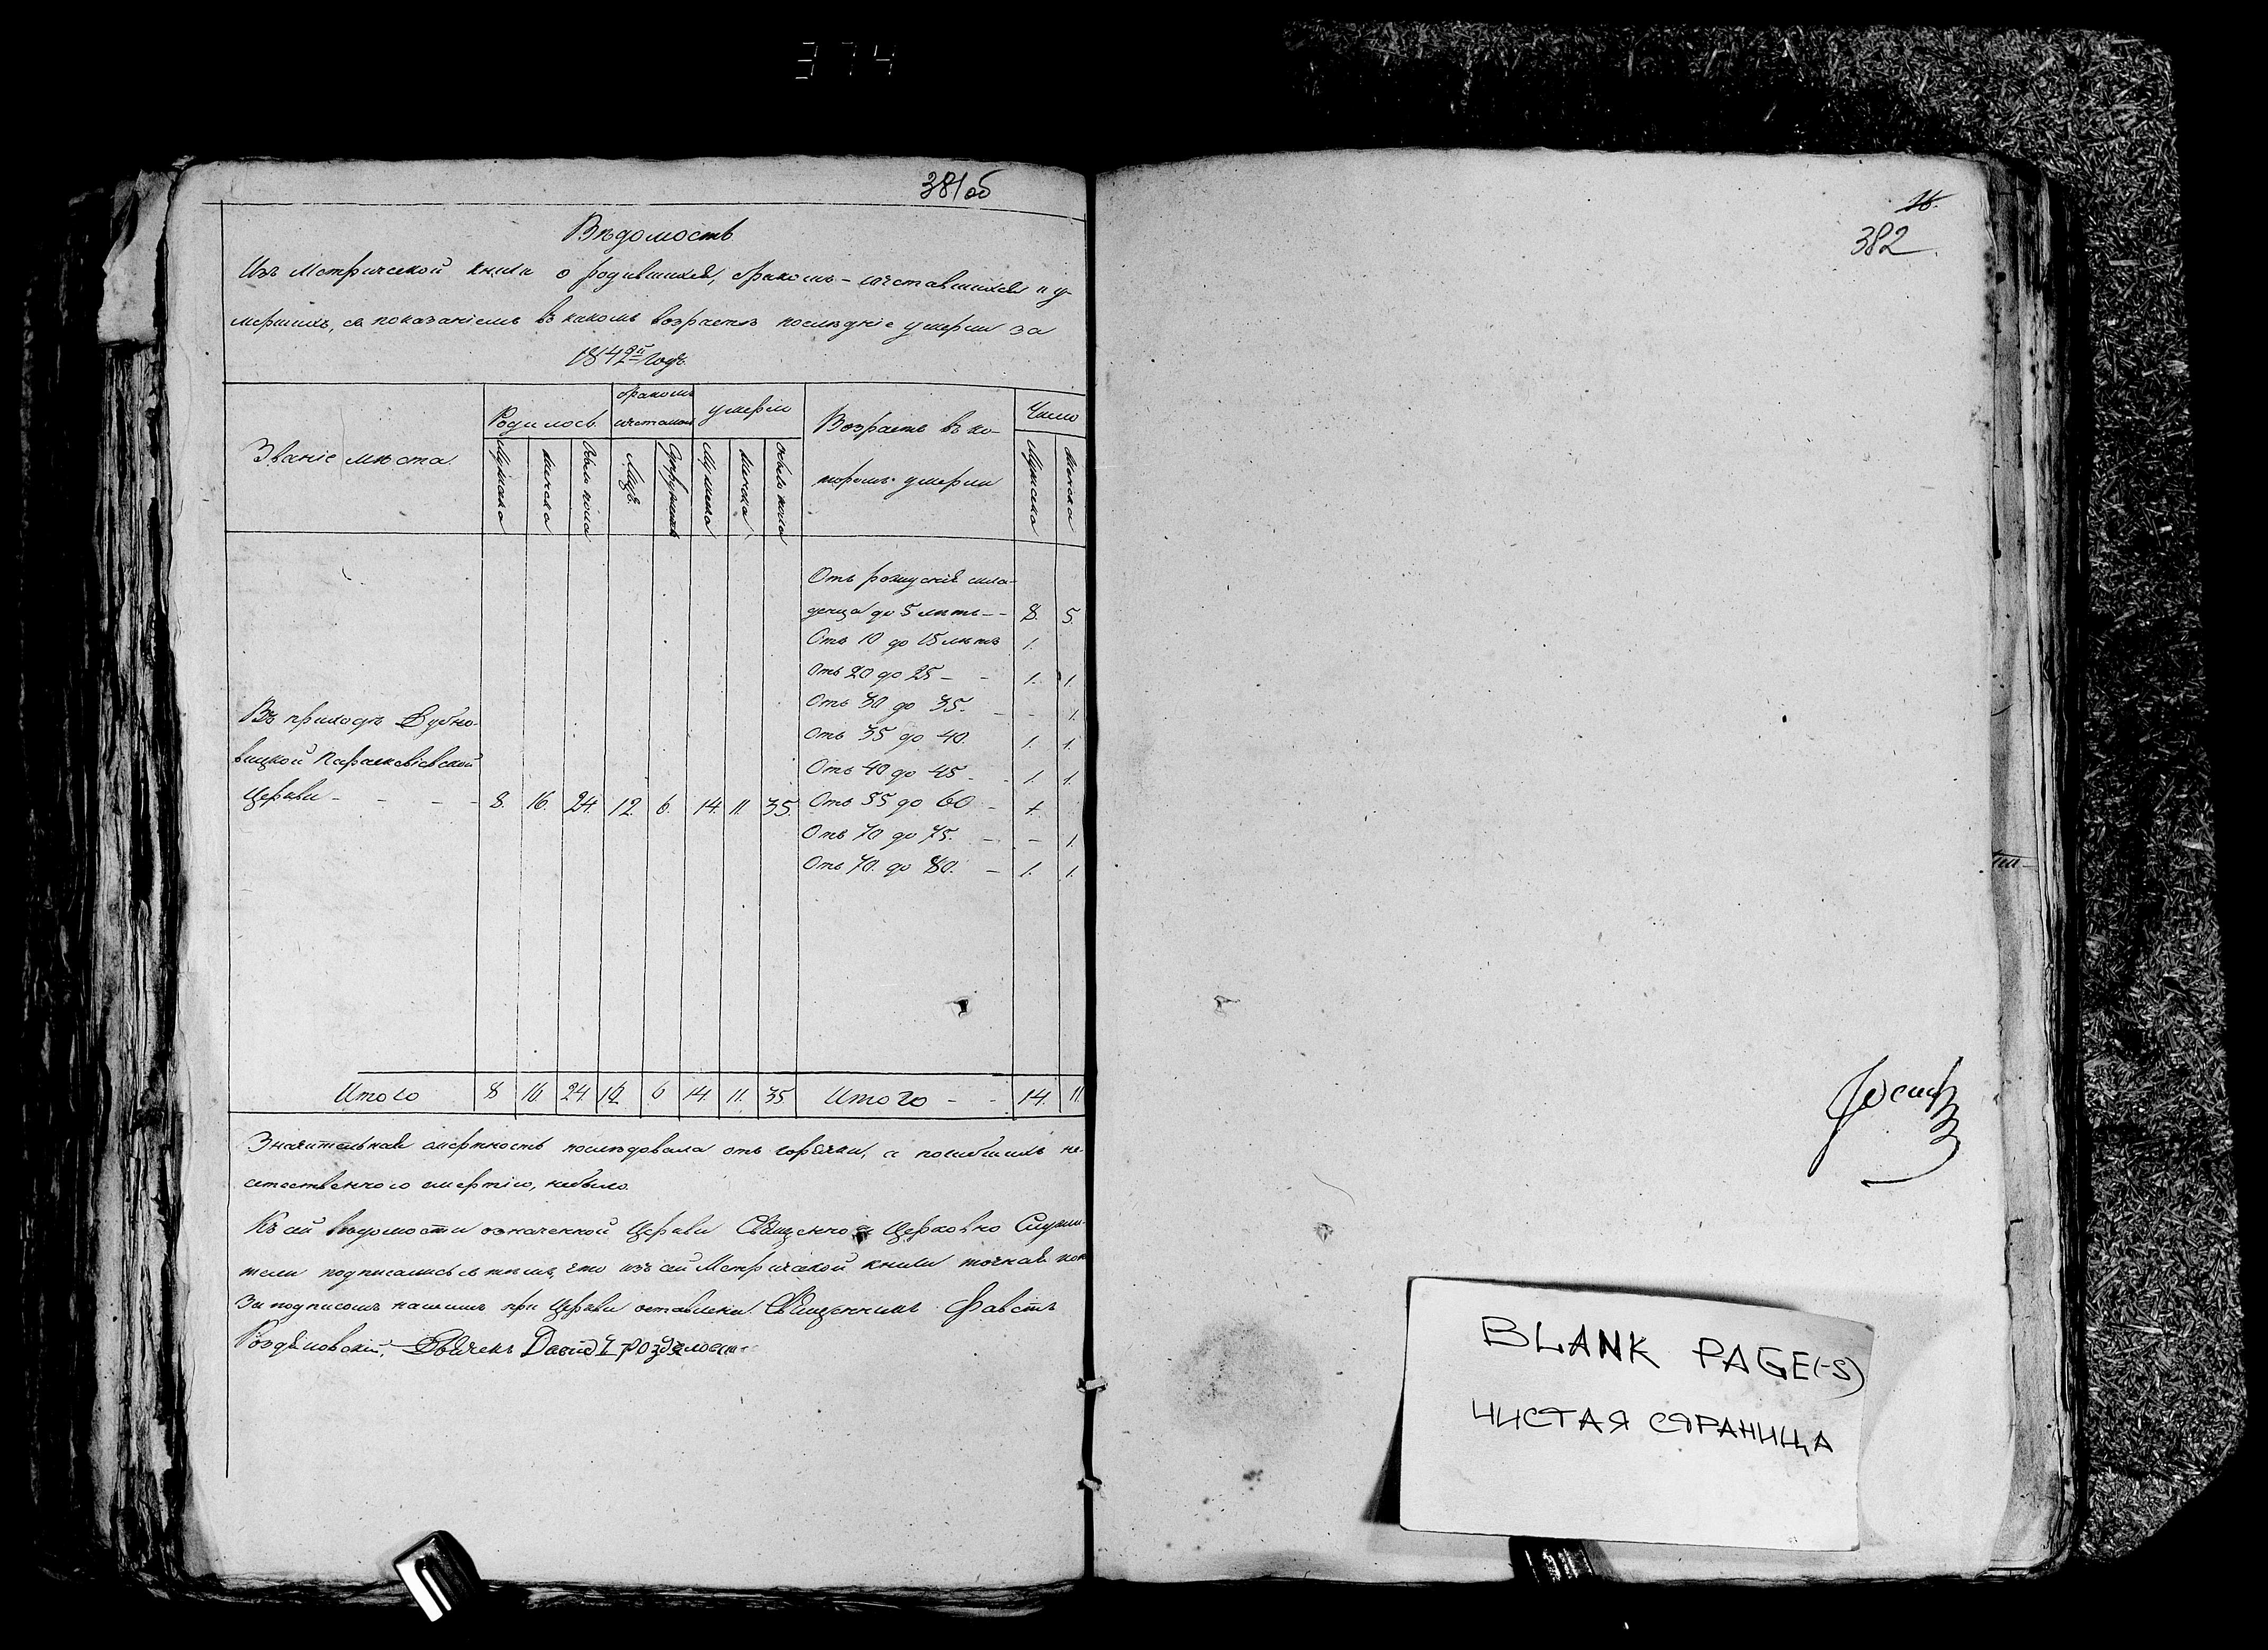 374
381об
Вѣдомость
Изъ Метрической книги о родившихся, бракомъ-сочетавшихся и у-
мершихъ, съ показаніемъ въ какомъ возрастѣ послѣдніе умерли за
1842й Годъ.
Званіе мѣста
Родилось
бракомъ
сочеталось
умерло
Возрастъ въ ко-
торомъ умерли
Число
Мужеска
женска
Обоего пола
Лицъ
Супружествъ
Мужеска
женска
обоего пола
Мужеска
женска
Отъ рожденія мла-
денца до 5 лѣтъ - - 8. 5.
Отъ 10 до 15 лѣтъ 1.
Отъ 20 до 25 - - 1. 1.
Отъ 30 до 35. - - 1.
Отъ 35 до 40. 1. 1.
Отъ 40 до 45 - - 1. 1.
Отъ 55 до 60 - 1.
Отъ 70 до 75. - - 1.
Отъ 70. до 80. - 1. 1.
Въ приходѣ Дубно-
вицкой Параскевіевской
Церкви - - - - 8. 16. 24. 12. 6. 14. 11. 35.
Итого 8 16 24 12 6 14 11. 35 Итого - - 14. 11
Значительная смертность послѣдовала отъ горячки, а погибшихъ не-
стественною смертію, небыло.
Къ сей вѣдомости означенной Церкви Священно и Церковно Служи-
тели подписались съ тѣмъ, что изъ сей Метрической книги точная коп
За подписомъ нашимъ при Церкви оставлена. Священникъ Фавстъ
Дьячекъ
16.
382
Іосиф
BLANK PAGE(-S)
ЧИСТАЯ СТРАНИЦА